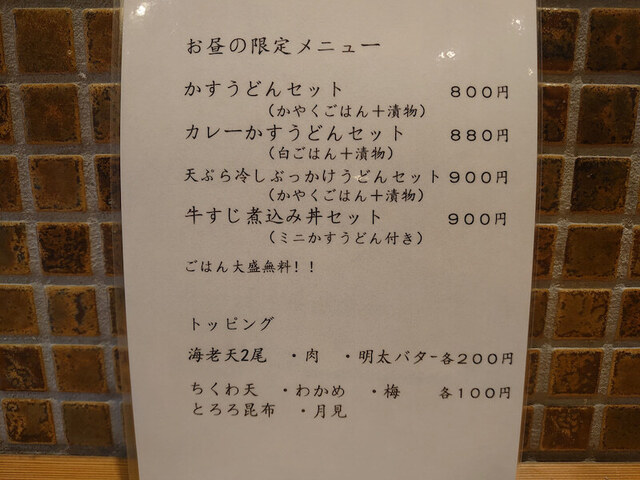 お昼の限定メニュー
かすうどんセット　８００円
（かやくごはん＋漬物）
カレーかすうどんセット　８８０円
（白ごはん＋漬物）
天ぷら冷しぶっかけうどんセット９００円
（かやくごはん＋漬物）
牛すじ煮込み丼セット　９００円
（ミニかすうどん付き）
ごはん大盛無料！！
トッピング
海老天2尾　・肉　・明太バター各２００円
ちくわ天　・わかめ　・梅　各１００円
とろろ昆布　・月見